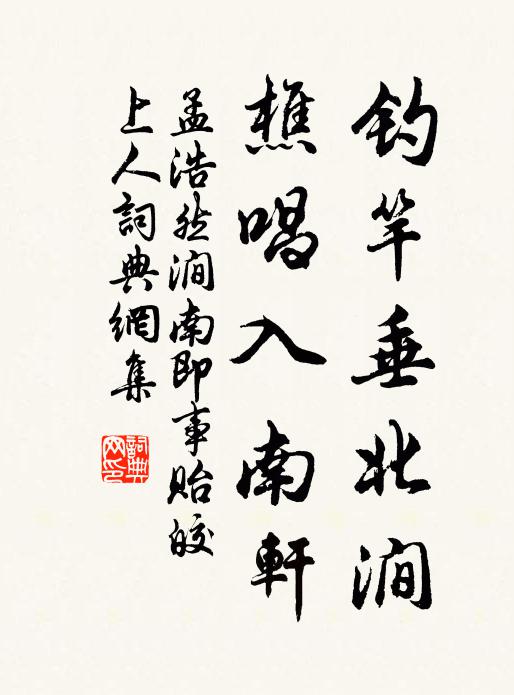 钓竿垂北涧
樵唱入南轩
孟浩然涧南即事贻皎
上人詞典網集
詞典
网印